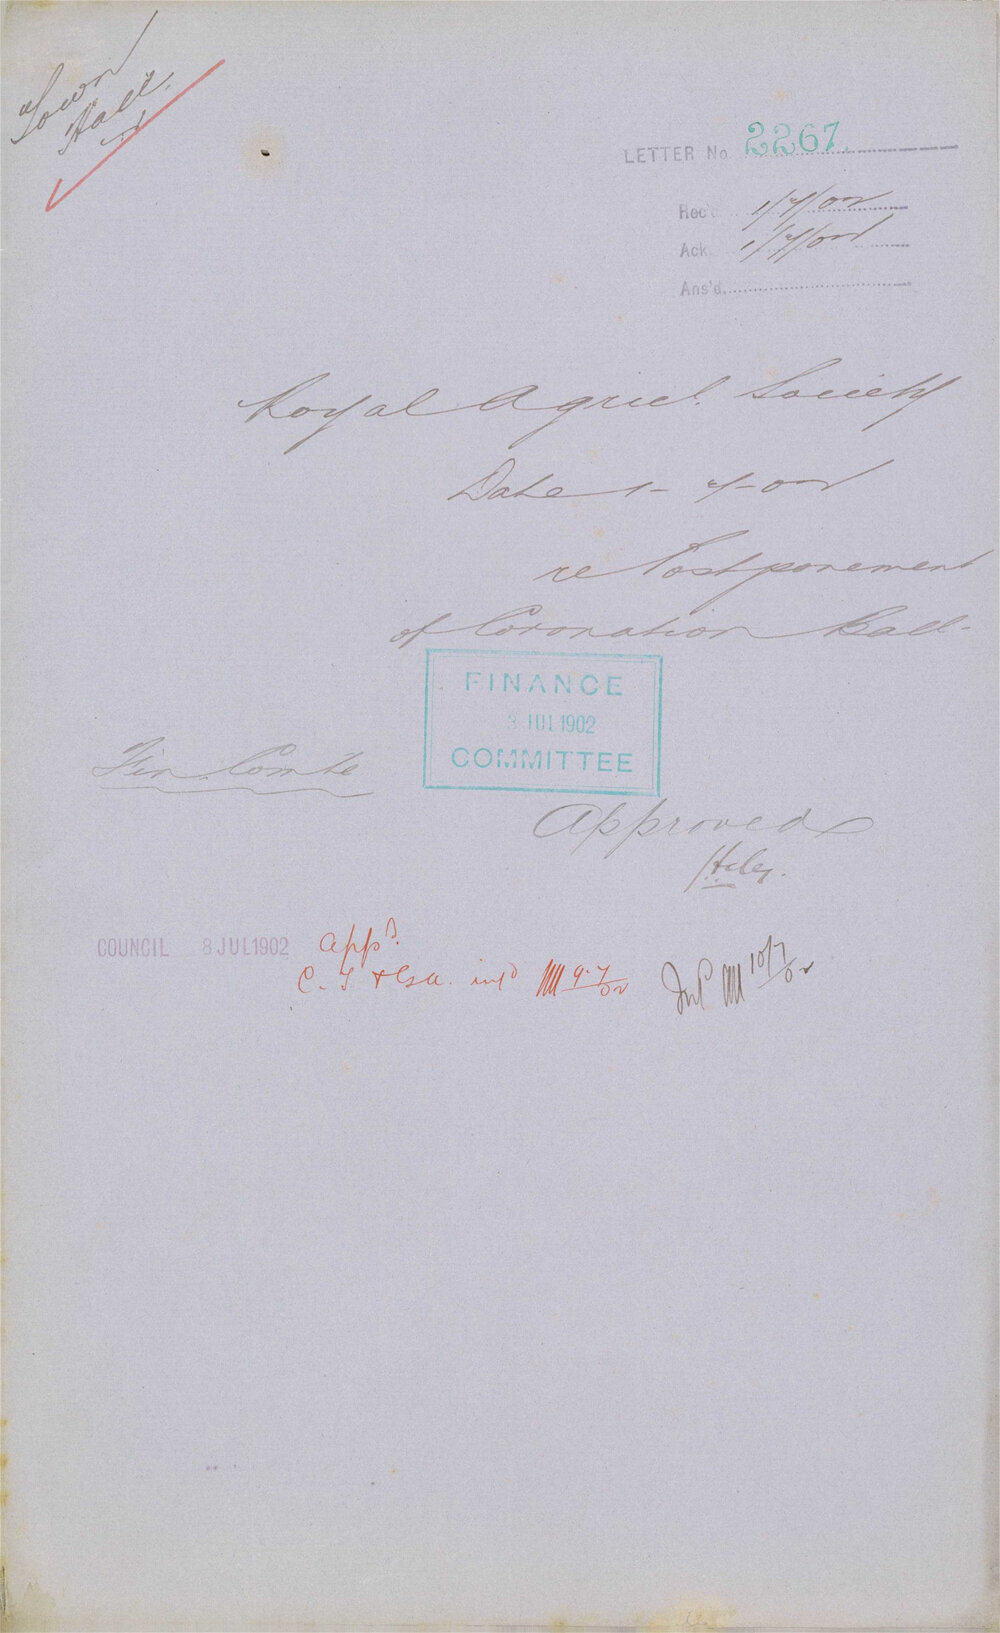 Town
Hall.
LETTER No. 2267.
Rec'd 1/7/02
Ack 1/7/02
Ans'd
Royal Agricl. Society
Date 1-7-02
re Postponement
of Coronation Ball.
FINANCE
3 JUL 1902
COMMITTEE
Fin. Comte
Approved
COUNCIL 8 JUL 1902 appd.
C. T & infd 9.7/02
Infd 10/7/02